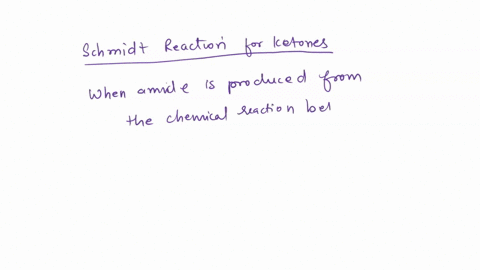 Schmidt Reaction for Ketones
When amide is produced from
the chemical reaction bet